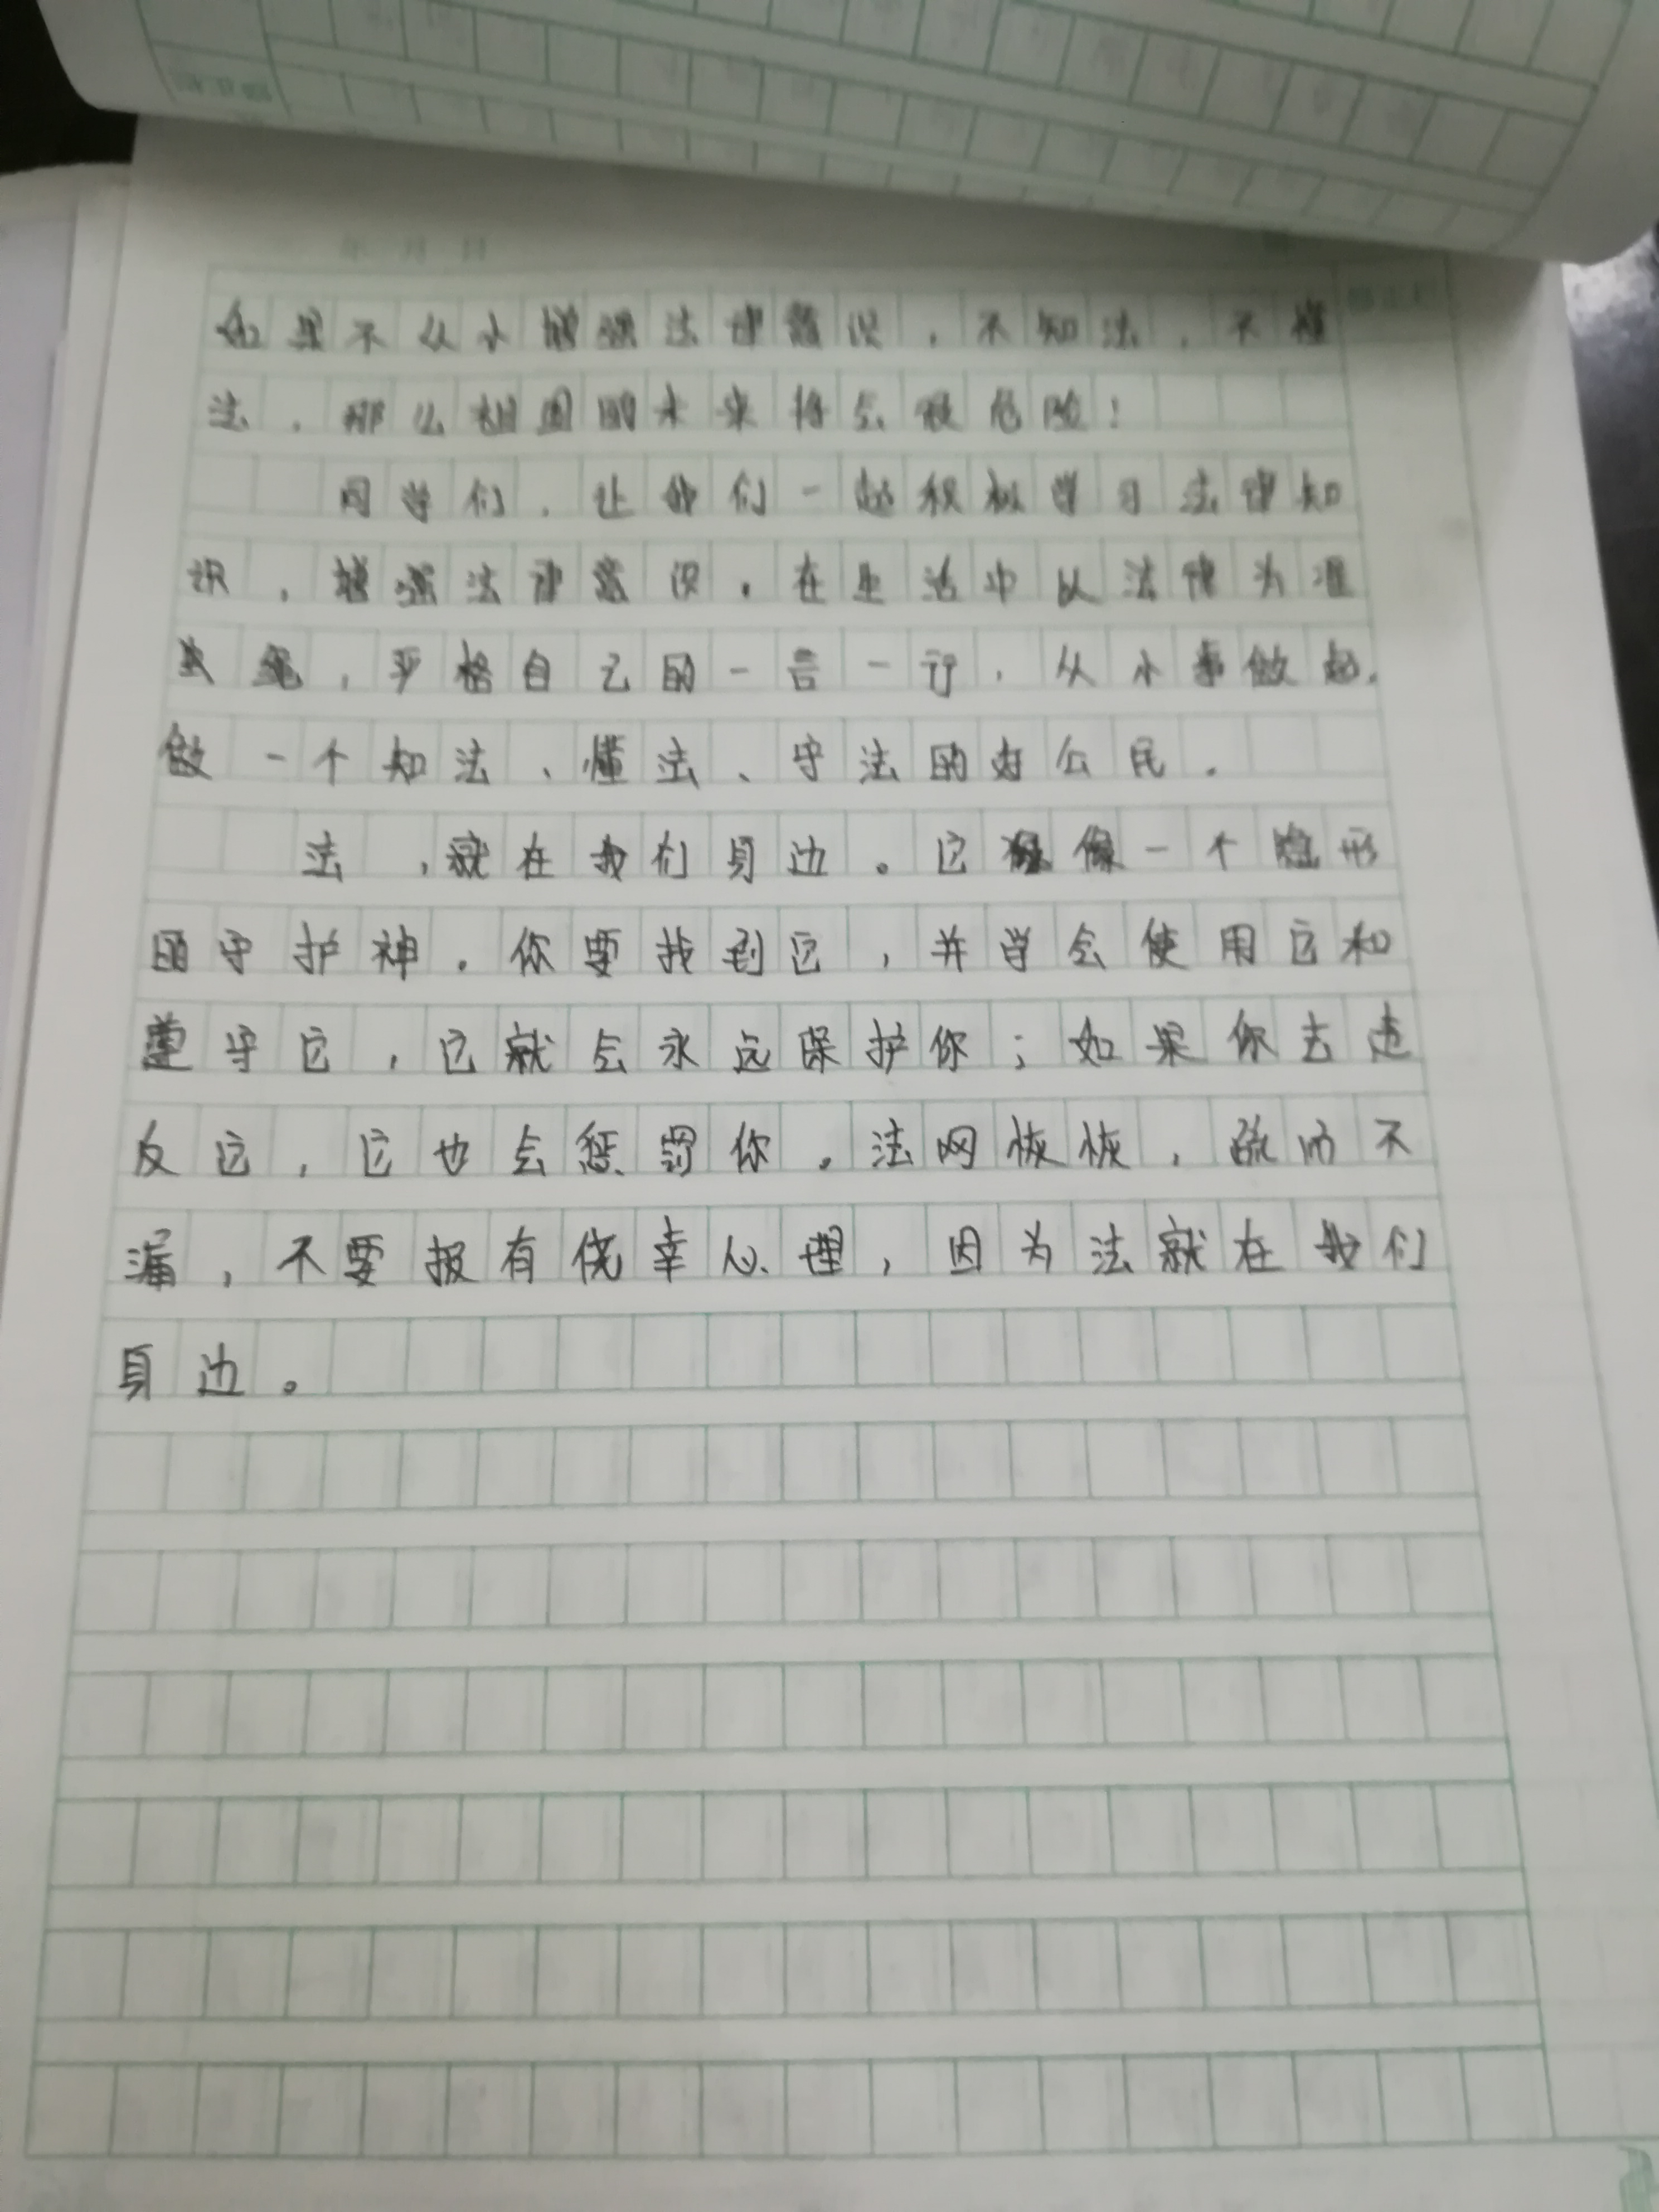 如果不从小增强法律意识，不知法，不懂
法，那么祖国的未来将会很危险！
同学们，让我们一起积极学习法律知
识，增强法律意识，在生活中以法律为准
绳，严格自己的一言一行，从小事做起，
做一个知法、懂法、守法的好公民。
法，就在我们身边。它像一个隐形
的守护神。你要找到它，并学会使用它和
遵守它，它就会永远保护你；如果你去违
反它，它也会惩罚你。法网恢恢，疏而不
漏，不要报有侥幸心理，因为法就在我们
身边。